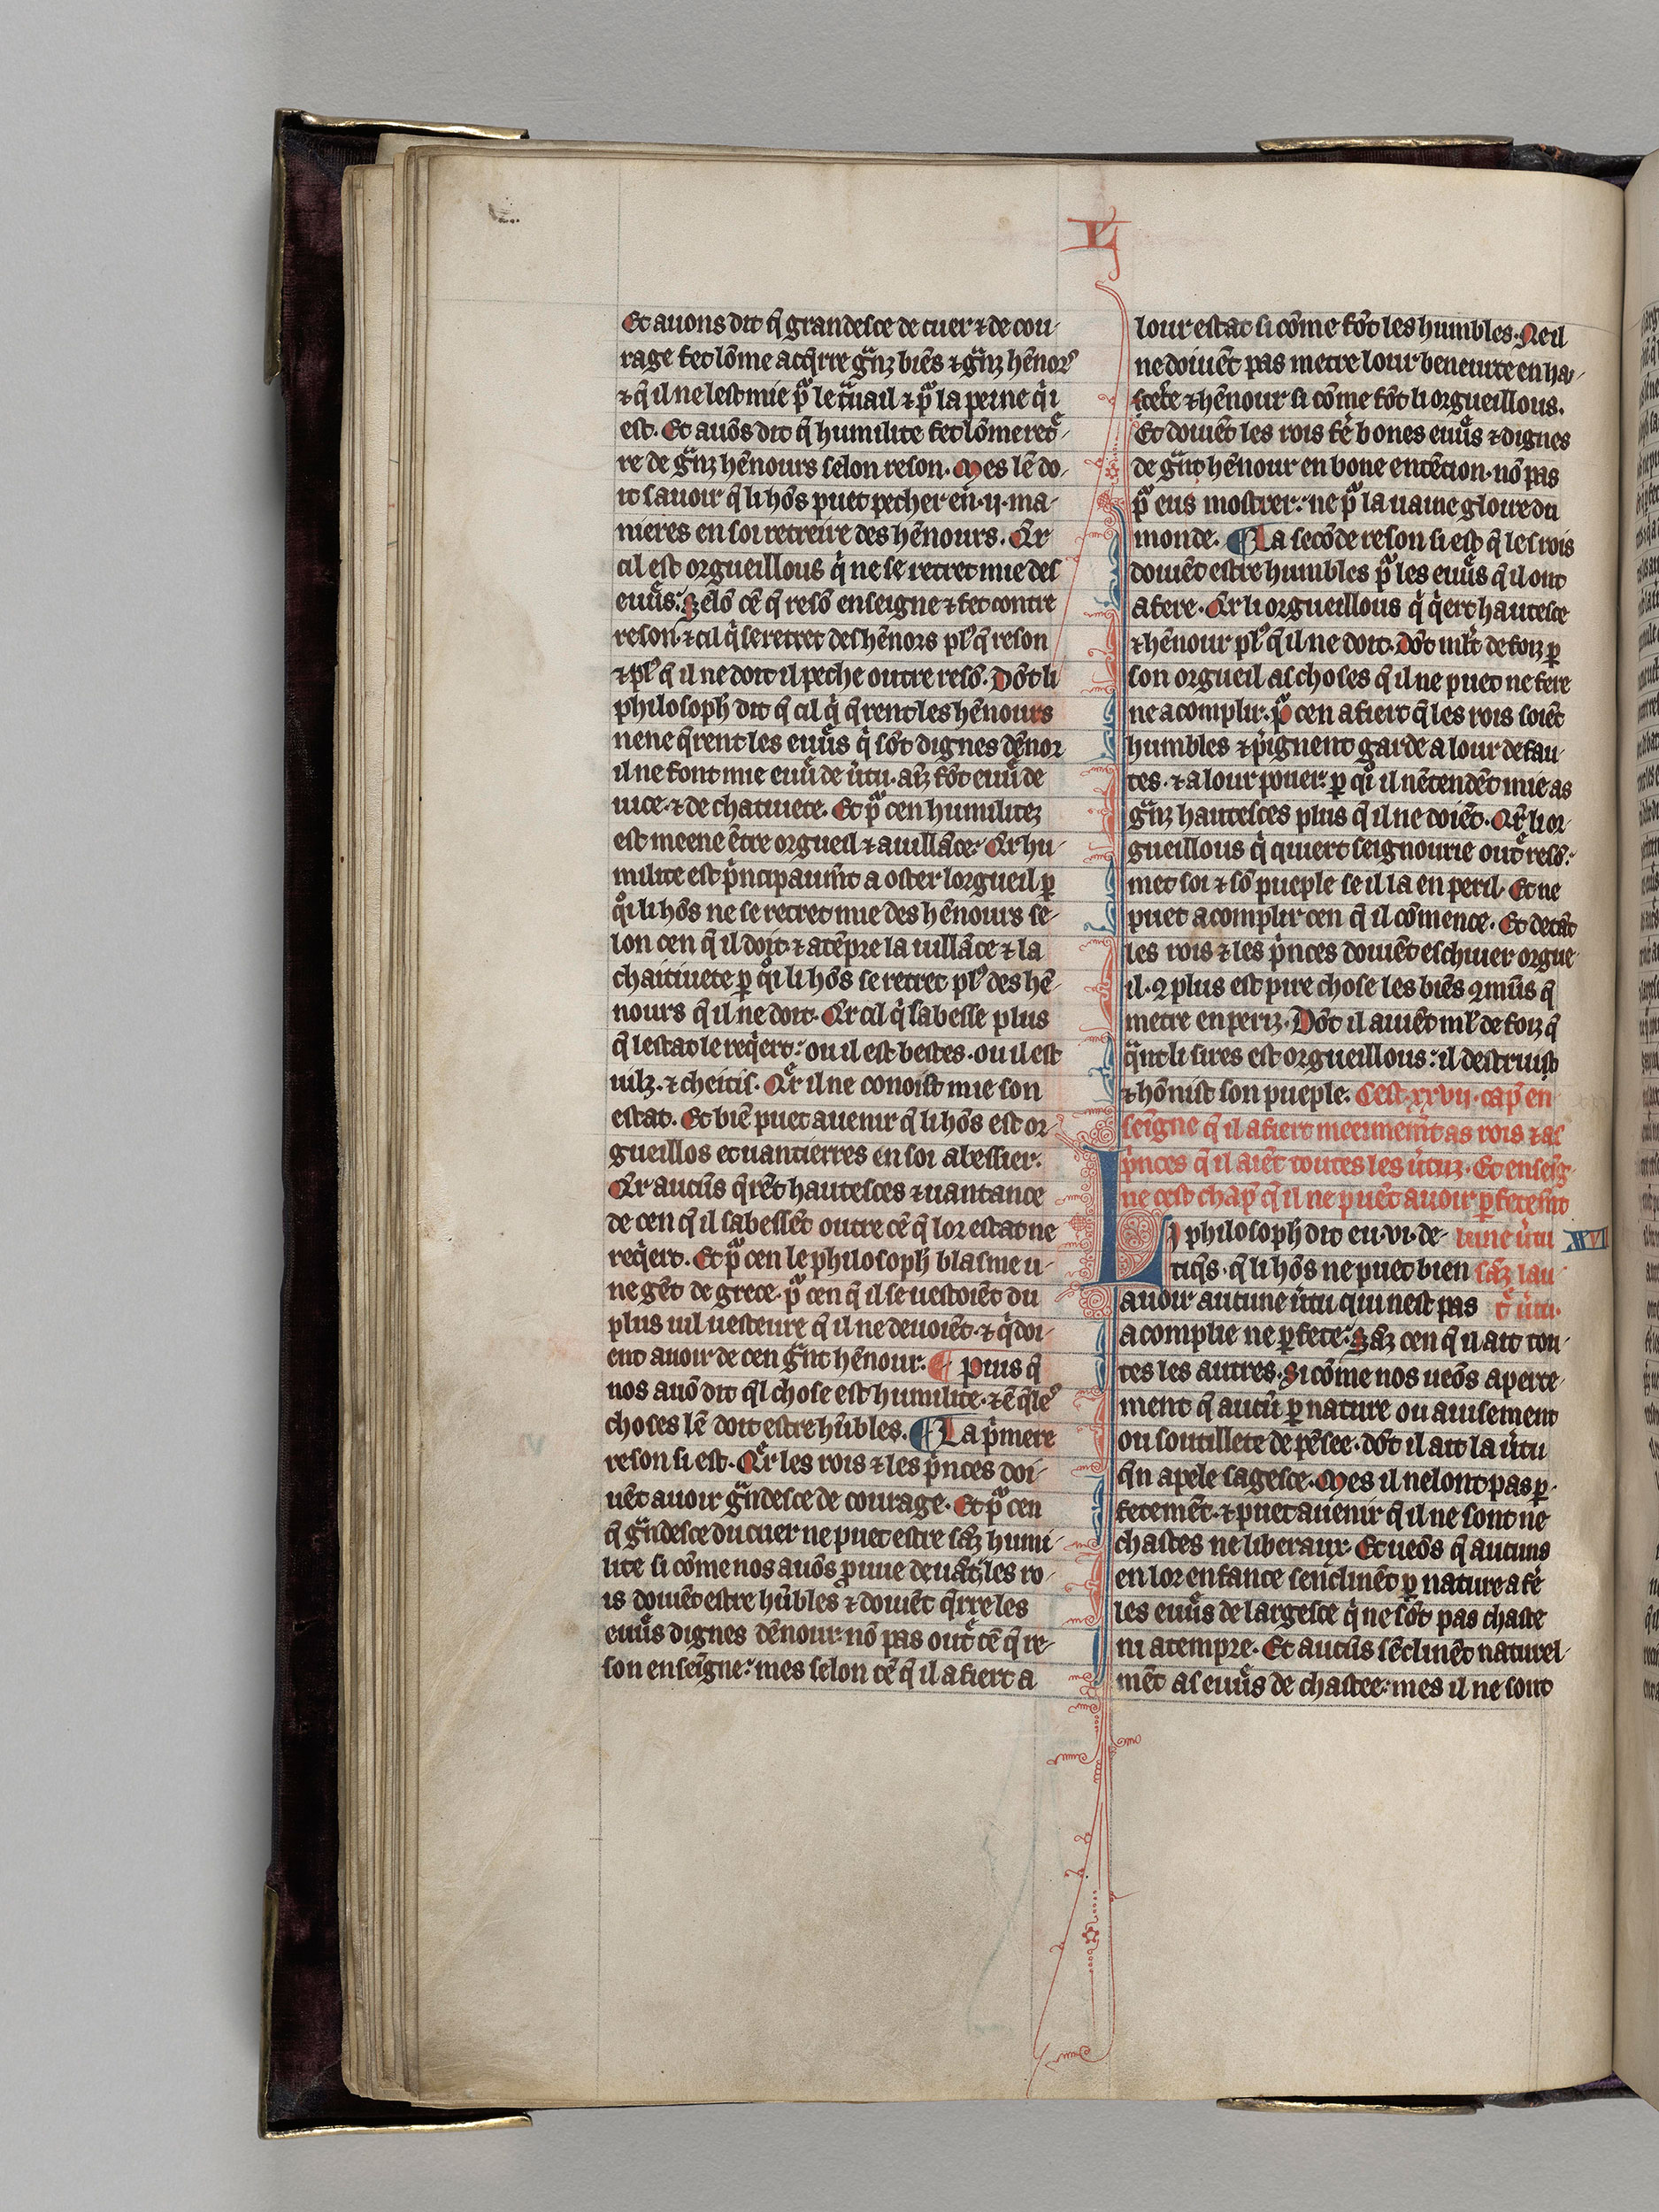 L
Et auons dit q̄ grandesce de cuer ⁊ de cou-
rage fet lōme acq̄rre gᵃnz biēs ⁊ gᵃnz hēnorˢ
⁊ q̄ il ne lest mie pᵒ le tᵃuail ⁊ pᵒ la peine qⁱ
est. Et auōs dit q̄ humilite fet lōme retᵉ-
re de gᵃnz hēnours selon reson. Mes lē do-
it sauoir q̄ li hōs puet pecher en .ij. ma-
nieres en soi retreire des hēnours. Qᵃr
cil est orgueillous qⁱ ne se retret mie des
euuᵉs. Selō cē q̄ resō enseigne ⁊ fet contre
reson. ⁊ cil qⁱ se retret des hēnors plꝰ q̄ reson
⁊ plꝰ q̄ il ne doit il peche outre resō. Dōt li
philosoph dit q̄ cil qⁱ q̄rent les hēnours
ne ne q̄rent les euuᵉs qⁱ sōt dignes dēnor
il ne font mie euuᵉ de ūtu. aīz fōt euuᵉ de
uice. ⁊ de chatiuete. Et pᵒ cen humilitez
est meene ētre orgueil ⁊ auillāce. Qᵃr hu-
milite est pⁱncipaumēt a oster lorgueil ꝑ
qᵒi li hōs ne se retret mie des hēnours se-
lon cen q̄ il doit. ⁊ atēpre la uillāce ⁊ la
chaitiuete ꝑ qᵒi li hōs se retret plꝰ des hē-
nours q̄ il ne doit. Qᵃr cil qⁱ sabesse plus
q̄ lestat le reqⁱert: ou il est bestes. ou il est
uilz. ⁊ cheitis. Qᵃr il ne conoist mie son
estat. Et biē puet auenir q̄ li hōs est or-
gueillos et uantierres en soi abessier.
Qᵃr aucūs q̄rēt hautesces ⁊ uantance
de cen q̄ il sabessēt outre cē q̄ lor estat ne
reqⁱert. Et pᵒ cen le philosoph blasme u-
ne gēt de grece. pᵒ cen q̄ il se uestoiēt du
plus uil uesteure q̄ il ne deuoiēt. ⁊ q̄doi-
ent auoir de cen gᵃnt hēnour. ¶ Puis q̄
nos auō dit q̄l chose est humilite. ⁊ ē q̄leˢ
choses lē doit estre hūbles. ¶ La pⁱmere
reson si est. Qᵃr les rois ⁊ les pⁱnces doi-
uēt auoir gᵃndesce de courage. Et pᵒ cen
q̄ gᵃndesce du cuer ne puet estre sāz humi-
lite si cōme nos auōs proue deuāt. les ro-
is doiuēt estre hūbles ⁊ doiuēt q̄rre les
euuᵉs dignes dēnour. nō pas outᵉ cē q̄ re-
son enseigne: mes selon cē q̄ il afiert a
lour estat si cōme fōt les humbles. Ne il
ne doiuēt pas metre lour beneurte en hau-
tesce ⁊ hēnour si cōme fōt li orgueillous.
Et doiuēt les rois fēⁱ bones euuᵉs ⁊ dignes
de gᵃnt hēnour en bone entēcion. nō pas
pᵒ eus mostrer: ne pᵒ la uaine gloire du
monde. ¶ La secōde reson si est q̄ les rois
doiuēt estre humbles pᵒ les euuᵉs q̄ il ont
a fere. Qᵃr li orgueillous qⁱ qⁱert hautesce
⁊ hēnour plꝰ q̄ il ne doit. Dōt mlt de foiz ꝑ
son orgueil as choses q̄ il ne puet ne fere
ne acomplir. pᵒ cen afiert q̄ les rois soiēt
humbles ⁊ pⁱgnent garde a lour defau-
tes. ⁊ a lour pouer. ꝑ qᵒi il nētendēt mie as
gᵃnz hautesces plus q̄ il ne doiēt. Qᵃr li or-
gueillous qⁱ quiert seignourie outᵉ resō.
met soi ⁊ sō pueple se il la en peril. Et ne
puet acomplir cen q̄ il cōmence. Et de tāt
les rois ⁊ les pⁱnces doiuēt eschiuer orgue-
il. ꝯ plus est pire chose les biēs ꝯmūs q̄
metre en periz. Dōt il auiēt ml̄t de foiz q̄
qᵃnt li sires est orgueillous: il destruist
⁊ hōnist son pueple. Cest .xxvij. cap̄ en
seigne q̄ il afiert meemēmt as rois ⁊ as
pⁱnces q̄ il aiēt toutes les ūtuz. Et enseig-
ne cest chap̄ q̄ il ne puēt auoir ꝑfetemēt
Li philosoph dit eu .vi. de
lune ūtu XXVI
tiqˢ. q̄ li hōs ne puet bien
sāz lau
auoir aucune ūtu qui nest pas
tᵉ ūtu.
acomplie ne ꝑfete. Sāz cen q̄ il ait tou-
tes les autres. Si cōme nos ueōs aperte-
ment q̄ aucū ꝑ nature ou auisement
ou soutillete de pēsee. dōt il ait la ūtu
q̄n apele sagesce. Mes il nelont pas ꝑ-
fetemēt. ⁊ puet auenir q̄ il ne sont ne
chastes ne liberaux. Et ueōs q̄ aucuns
en lor enfance senclinēt ꝑ nature a fēⁱ
les euuᵉs de largesce qⁱ ne sōt pas chaste
ni atempre. Et aucūs sēclinēt naturel-
mēt as euuᵉs de chastee: mes il ne sont